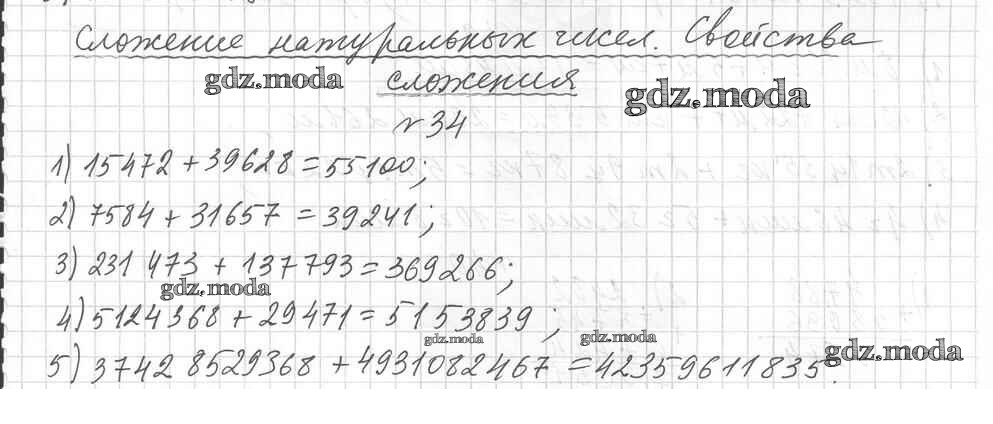 Сложение натуральных чисел. Свойства
сложения
gdz.moda
gdz.moda
№ 34
1) 15472 + 39628 = 55100;
2) 7584 + 31657 = 39241;
3) 231 473 + 137793 = 369266;
gdz.moda
4) 5124368 + 29471 = 5153839;
gdz.moda
gdz.moda
5) 37428529368 + 4931082467 = 42359611835.
gdz.moda